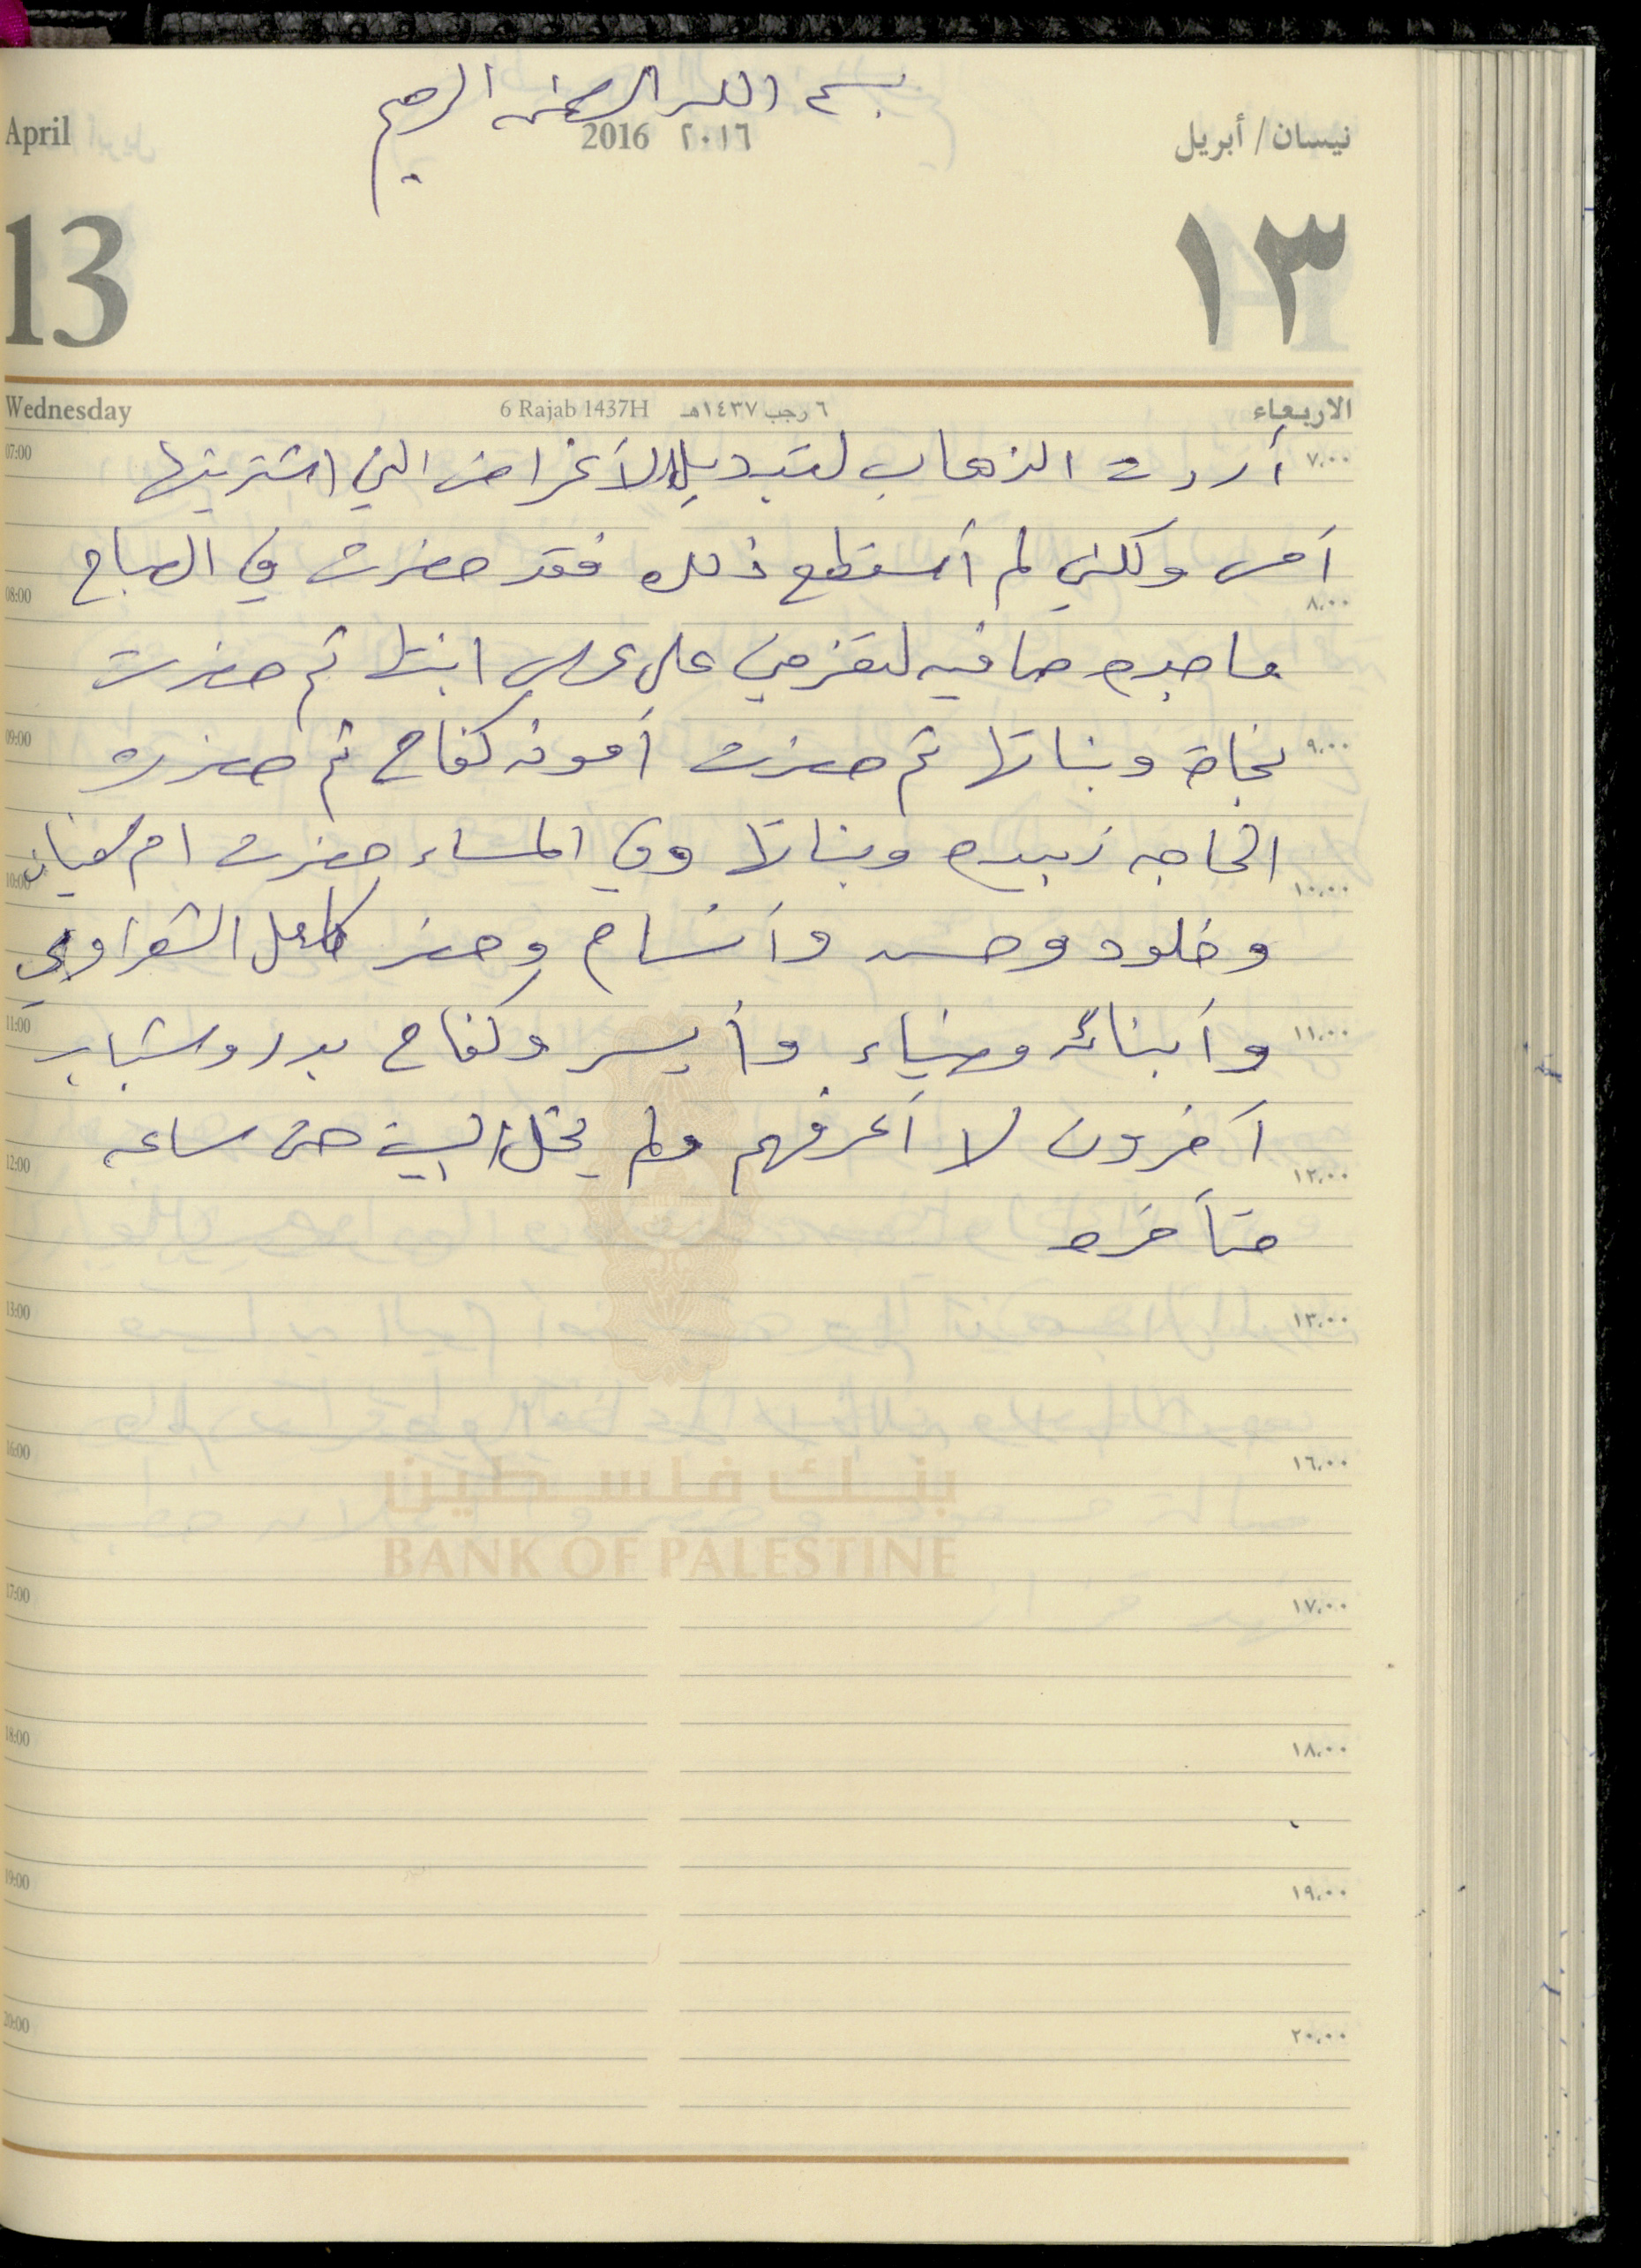 بسم الله الرحمن الرحيم
April 2016 ٢٠١٦ نيسان / أبريل
13 ١٣
Wednesday 6 Rajab 1437H ٦ رجب ١٤٣٧هـ الاربعاء
07:00 أردت الذهاب لتبديل الأغراض التي اشتريتها ٧،٠٠
أمس ولكني لم أستطع ذلك فقد حضرت في الصباح
08:00 ٨،٠٠
ماجده صافيه لتعزمني على عرس ابنتها ثم حضرت
09:00 نجاة وبناتها ثم حضرت أمونه كفاح ثم حضرت ٩،٠٠
الحاجه زبيده وبناتها وفي المساء حضرت ام سفيان
10:00 ١٠،٠٠
وخلود وحسن وأنسام وحضر كامل الشعراوي
11:00 وأبنائه وضياء وأيسر وكفاح بدر وشباب ١١،٠٠
آخرون لا أعرفهم ولم يخل البيت حتى ساعه
12:00 ١٢،٠٠
متأخره
13:00 ١٣،٠٠
16:00 ١٦،٠٠
بنك فلسطين
BANK OF PALESTINE
17:00 ١٧،٠٠
18:00 ١٨،٠٠
19:00 ١٩،٠٠
20:00 ٢٠،٠٠